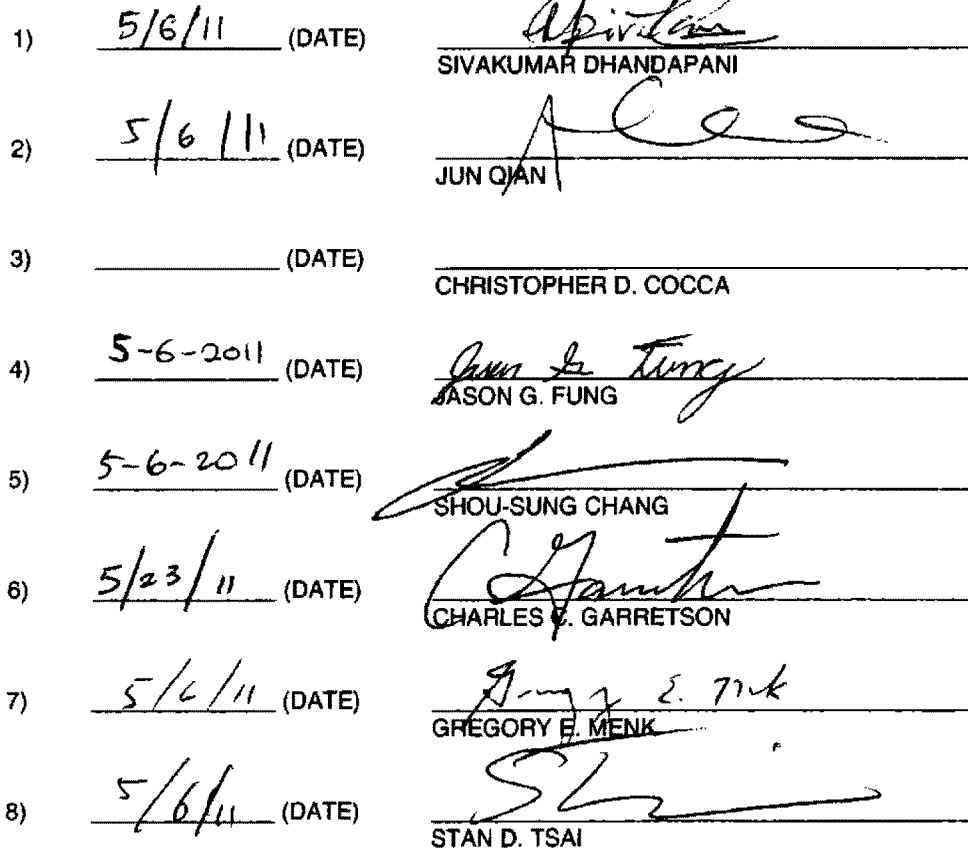 1) 5/6/11 (DATE)
SIVAKUMAR DHANDAPANI
2) 5/6/11 (DATE)
JUN QIAN
3) (DATE)
CHRISTOPHER D. COCCA
4) 5-6-2011 (DATE) Fung
JASON G. FUNG
5) 5-6-2011 (DATE)
SHOU-SUNG CHANG
6) 5/23/11 (DATE)
CHARLES C. GARRETSON
7) 5/6/11 (DATE) Gregory E. Menk
GREGORY E. MENK
8) 5/6/11 (DATE)
STAN D. TSAI